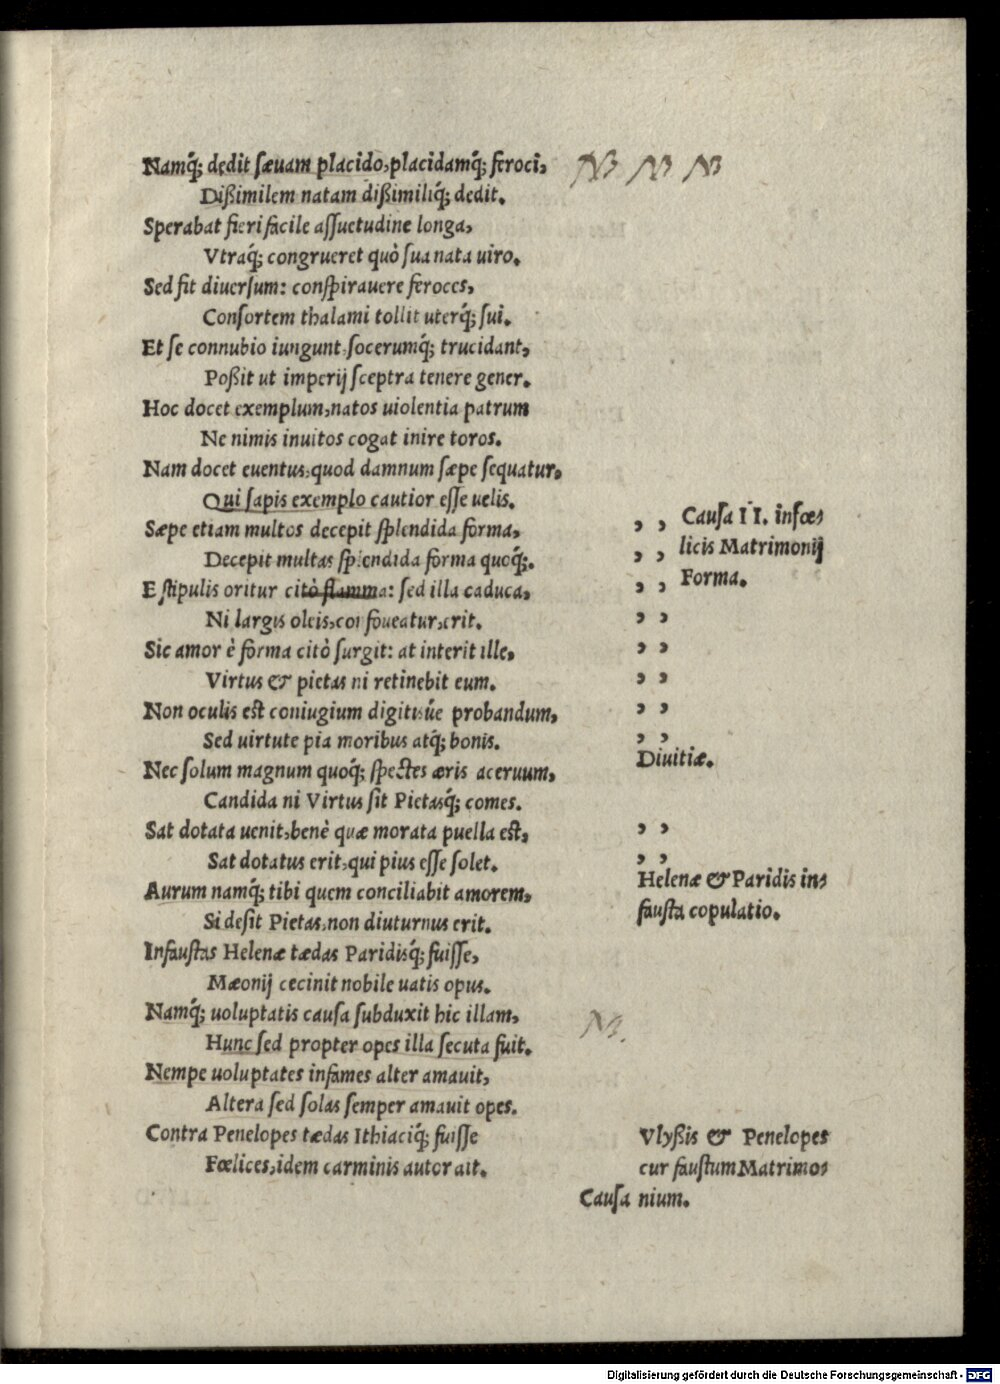 Namq́; dedit sæuam placido, placidamq́; feroci,
Dißimilem natam dißimiliq́; dedit.
Sperabat fieri facile assuetudine longa,
Vtraq́; congrueret quò sua nata uiro.
Sed fit diuersum: conspirauere feroces,
Consortem thalami tollit uterq́; sui.
Et se connubio iungunt, socerumq́; trucidant,
Poßit ut imperij sceptra tenere gener.
Hoc docet exemplum, natos uiolentia patrum
Ne nimis inuitos cogat inire toros.
Nam docet euentus, quod damnum sæpe sequatur,
Qui sapis exemplo cautior esse uelis.
Sæpe etiam multos decepit splendida forma,
Decepit multas splendida forma quoq́;.
E stipulis oritur citò flamma: sed illa caduca,
Ni largis oleis, foueatur, erit.
Sic amor è forma citò surgit: at interit ille,
Virtus & pietas ni retinebit eum.
Non oculis est coniugium digitisúe probandum,
Sed uirtute pia moribus atq́; bonis.
Nec solum magnum quoq́; spectes æris aceruum,
Candida ni Virtus sit Pietasq́; comes.
Sat dotata uenit, benè quæ morata puella est,
Sat dotatus erit, qui pius esse solet.
Aurum namq́; tibi quem conciliabit amorem,
Si desit Pietas, non diuturnus erit.
Infaustas Helenæ tædas Paridisq́; fuisse,
Mæonij cecinit nobile uatis opus.
Namq́; uoluptatis causa subduxit hic illam,
Hunc sed propter opes illa secuta fuit.
Nempe uoluptates infames alter amauit,
Altera sed solas semper amauit opes.
Contra Penelopes tædas Ithiaciq́; fuisse
Fœlices, idem carminis autor ait.
Causa
NB NB NB
, , Causa II. infœ-
, , licis Matrimonij
, , Forma.
, ,
, ,
, ,
, ,
, ,
Diuitiæ.
, ,
, ,
Helenæ & Paridis in-
fausta copulatio.
NB.
Vlyßis & Penelopes
cur faustum Matrimo-
nium.
Digitalisierung gefördert durch die Deutsche Forschungsgemeinschaft - DFG